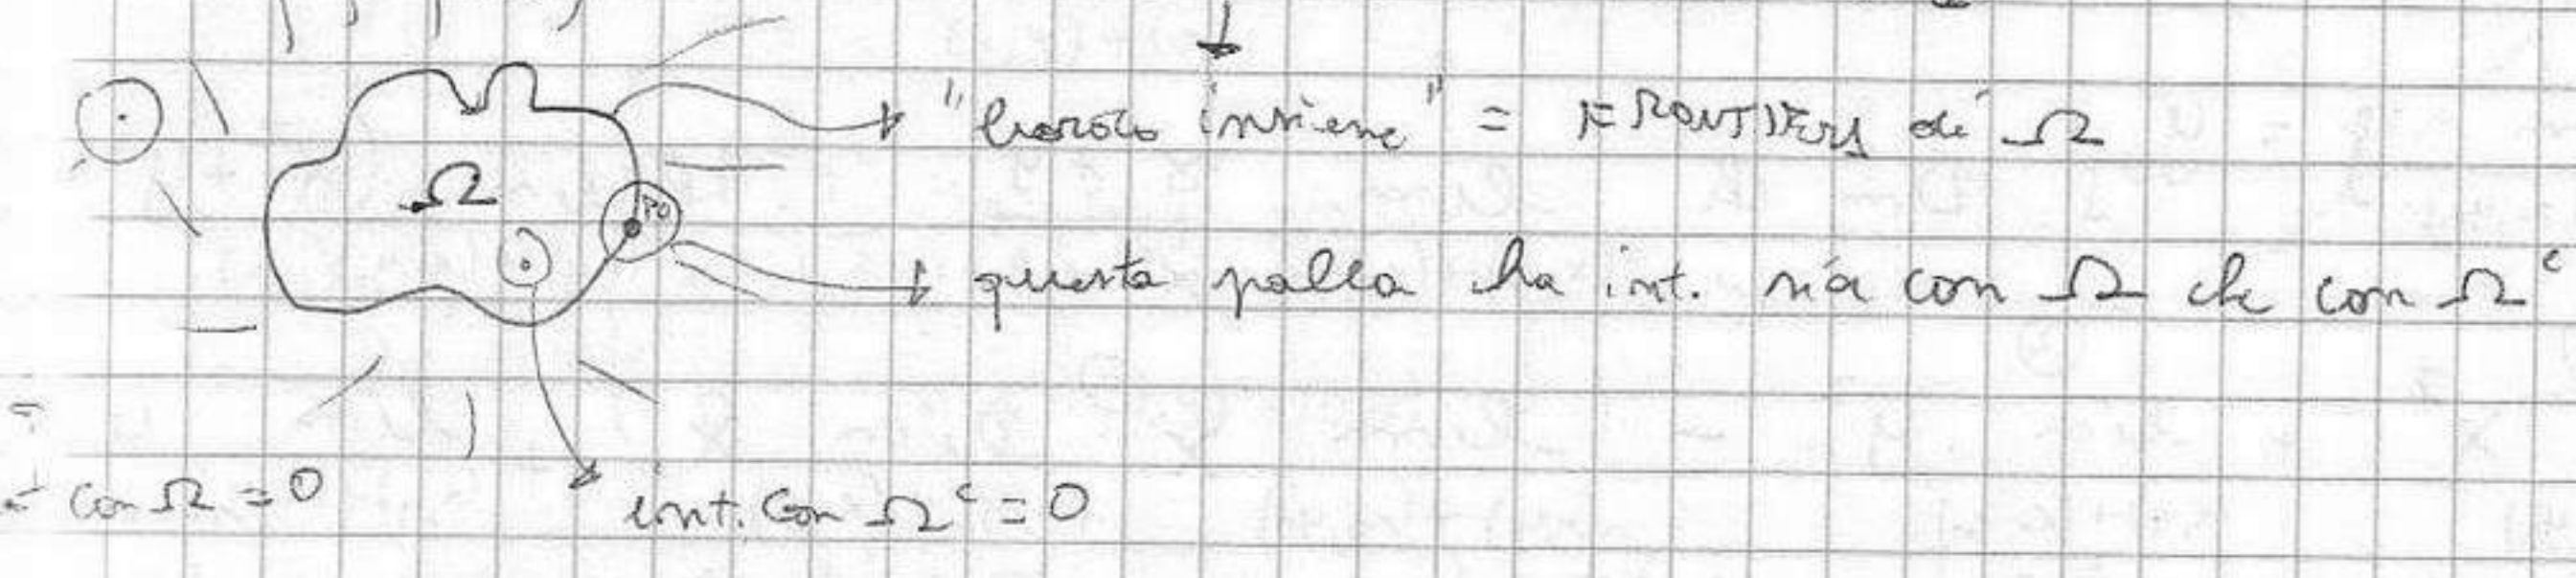 "bordo insieme" = FRONTIERA di Ω
Ω
P0
questa palla ha int. sia con Ω che con Ωᶜ
con Ω = 0
int. con Ωᶜ = 0